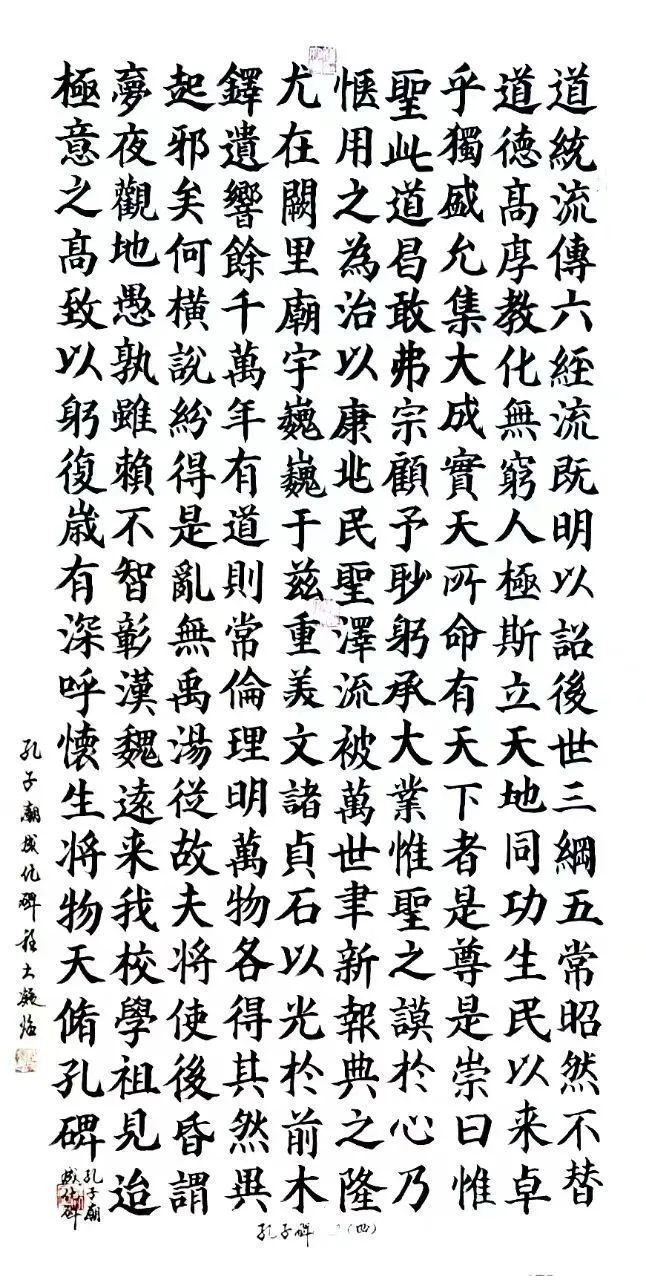 道統流傳六經流既明以詔後世三綱五常昭然不替
道德高厚教化無窮人極斯立天地同功生民以来卓
乎獨盛允集大成實天所命有天下者是尊是崇曰惟
聖此道昌敢弗宗顧予眇躬承大業惟聖之謨於心乃
惬用之為治以康兆民聖澤流被萬世聿新報典之隆
尤在闕里廟宇巍巍于兹重美文諸貞石以光於前木
鐸遺響餘千萬年有道則常倫理明萬物各得其然異
起邪矣何横説紛得是亂無禹湯從故夫将使後昏謂
夢夜觀地愚孰雖賴不智彰漢魏遠来我校學祖見迨
極意之高致以躬復歳有深呼懐生将物天脩孔碑
孔子廟
成化碑
孔子廟成化碑
孔子碑 (四)